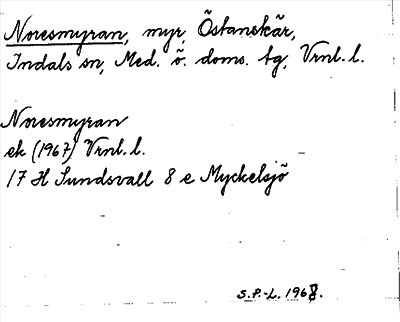 Noresmyran, myr, Östanskär,
Indals sn, Med. ö. doms. tg, Vrnl. l.
Noresmyran
ek (1967) Vrnl. l.
17 H Sundsvall 8 e Myckelsjö
S.P.-L. 1968.